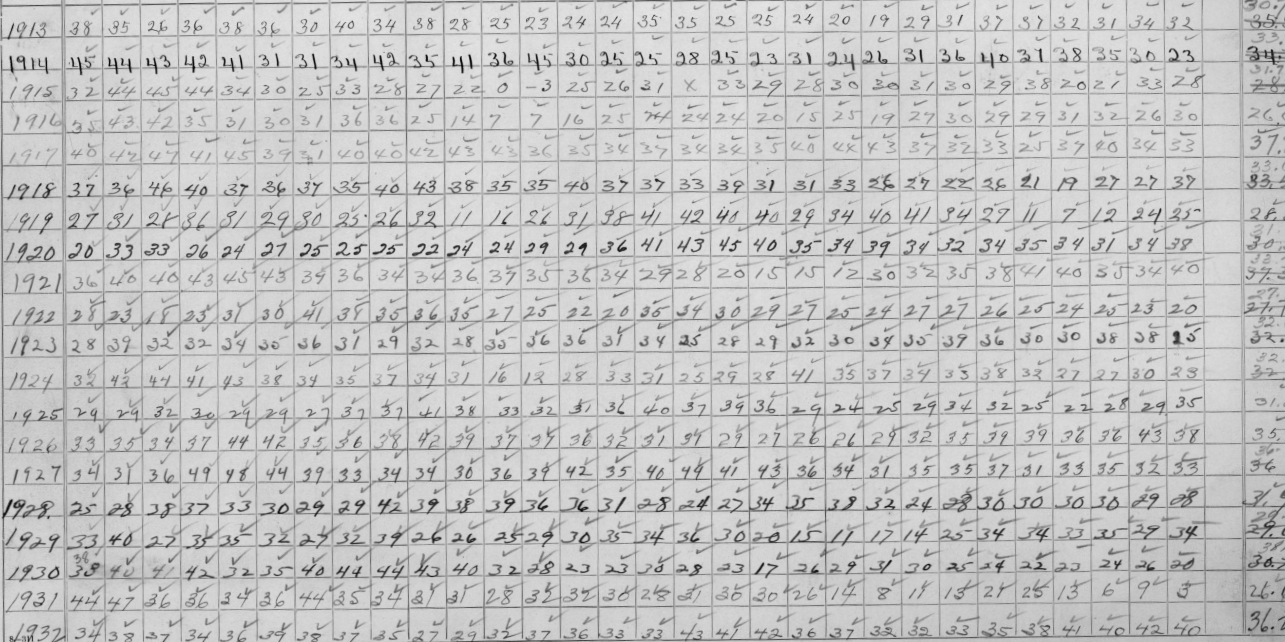 1913 38 35 26 36 38 36 30 40 34 38 28 25 23 24 24 35 35 25 25 24 20 19 29 31 37 37 32 31 34 32
1914 45 44 43 42 41 31 31 34 42 35 41 36 45 30 25 25 28 25 23 31 24 26 31 36 40 37 38 35 30 23
1915 32 44 45 44 34 30 25 33 28 27 22 0 -3 25 26 31 x 33 29 28 30 30 31 30 29 38 20 21 33 28
1916 35 43 42 35 31 30 31 36 36 25 14 7 7 16 25 24 24 20 15 25 19 27 30 29 29 31 32 26 30
1917 40 42 47 41 45 39 31 40 40 42 43 43 36 35 34 37 34 34 35 40 44 43 37 32 33 25 37 40 34 33
1918 37 36 46 40 37 36 37 35 40 43 38 35 35 40 37 37 33 39 31 31 33 26 27 22 26 21 19 27 27 37
1919 27 31 28 36 31 29 30 25 26 32 11 16 26 31 38 41 42 40 40 29 34 40 41 34 27 11 7 12 24 25
1920 20 33 33 26 24 27 25 25 25 22 24 24 29 29 36 41 43 45 40 35 34 39 34 32 34 35 34 31 34 38
1921 36 40 40 43 45 43 39 36 34 34 36 37 35 36 34 29 28 20 15 15 12 30 32 35 38 41 40 35 34 40
1922 28 23 18 23 31 30 41 38 35 36 35 27 25 22 20 35 34 30 29 27 25 24 27 27 26 25 24 25 23 20
1923 28 39 32 32 34 35 36 31 29 32 28 35 36 36 31 34 25 28 29 32 30 34 35 39 36 30 30 38 38 25
1924 32 42 44 41 43 38 34 35 37 34 31 16 12 28 33 31 25 29 28 41 35 37 34 33 38 32 27 27 30 23
1925 29 29 32 30 29 29 27 37 37 41 38 33 32 31 36 40 37 39 36 29 24 25 29 34 32 25 22 28 29 35
1926 33 35 34 37 44 42 35 36 38 42 39 37 37 36 32 31 39 29 27 26 26 29 32 35 39 39 36 36 43 38
1927 34 31 36 49 48 44 39 33 34 34 30 36 39 42 35 40 49 41 43 36 34 31 35 35 37 31 33 35 32 33
1928 25 28 38 37 33 30 29 29 42 39 38 39 36 36 31 28 24 27 34 35 38 32 24 28 30 30 30 30 29 28
1929 33 40 27 35 35 32 27 32 39 26 26 25 29 30 35 34 36 30 20 15 11 17 14 25 34 34 33 35 29 34
1930 38 40 41 42 32 35 40 44 44 43 40 32 28 23 23 30 28 23 17 26 29 31 30 25 24 22 23 24 26 20
1931 44 47 36 36 34 36 44 35 34 31 31 28 32 32 36 28 31 30 30 26 14 8 11 13 21 25 13 6 9 3
1932 34 38 37 34 36 39 38 37 35 27 29 32 37 36 33 33 43 47 42 36 37 32 32 33 35 38 41 40 42 40